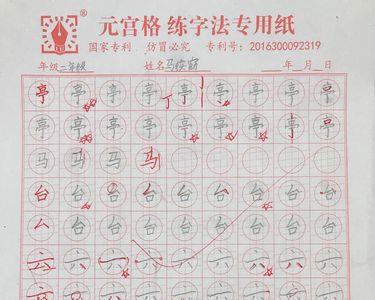 元宫格 练字法专用纸
国家专利 仿冒必究 专利号：2016300092319
年级 二年级 姓名 年 月 日
亭 亭 亭 亭 亭 亭 亭 亭
亭 亭 亭 亭 亭 亭 亭 亭
马 马 马 马
台 台 台 台 台 台 台 台
台 台 台 台 台 台 台
六 六 六 六 六 六 六 六